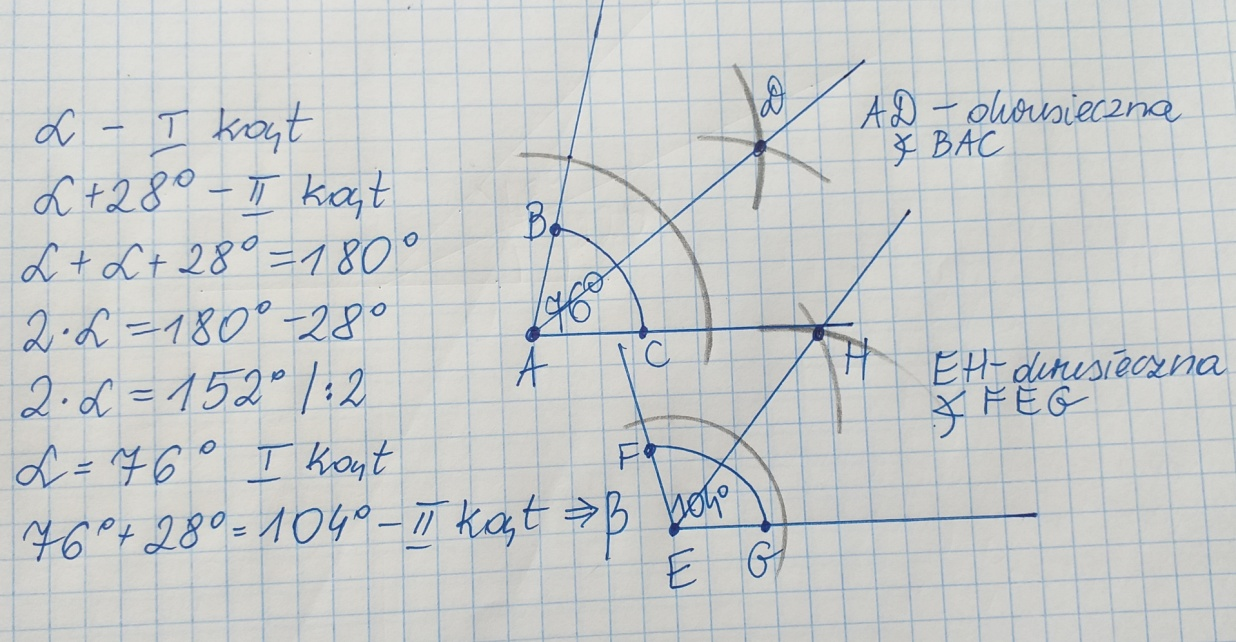 α - I kąt
α + 28° - II kąt
α + α + 28° = 180°
2·α = 180° - 28°
2·α = 152° /:2
α = 76° I kąt
76° + 28° = 104° - II kąt ⇒ β
D
AD - dwusieczna
∢ BAC
B
76°
A
C
H
EH - dwusieczna
∢ FEG
F
104°
E
G